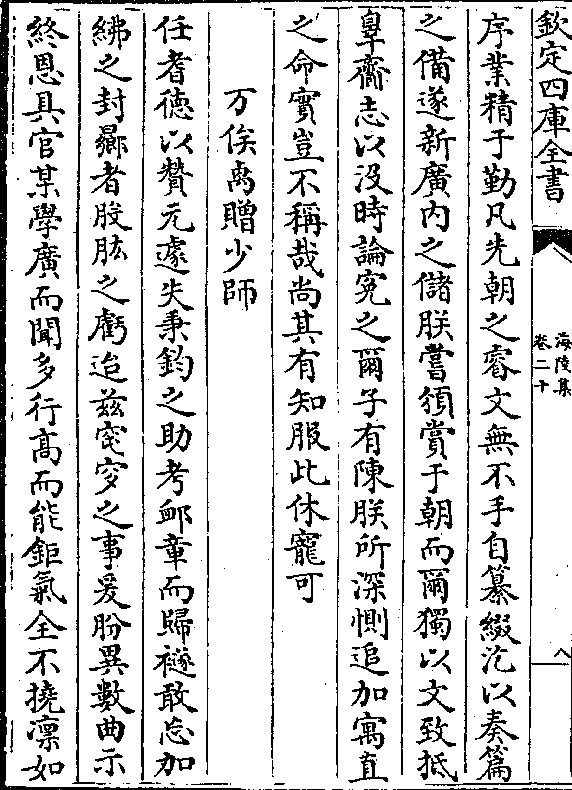 欽定四庫全書
海陵集
卷二十
八
序業精于勤凡先朝之睿文無不手自纂綴汔以奏篇
之備遂新廣内之儲朕嘗頒賞于朝而爾獨以文致抵
辠齎志以没時論寃之爾子有陳朕所深惻追加寓直
之命實豈不稱哉尚其有知服此休寵可
万俟卨贈少師
任耆德以賛元遽失秉鈞之助考卹章而歸襚敢忘加
紼之封疇者股肱之虧迨兹窀穸之事爰肦異數曲示
終恩具官某學廣而聞多行高而能鉅氣全不撓凛如